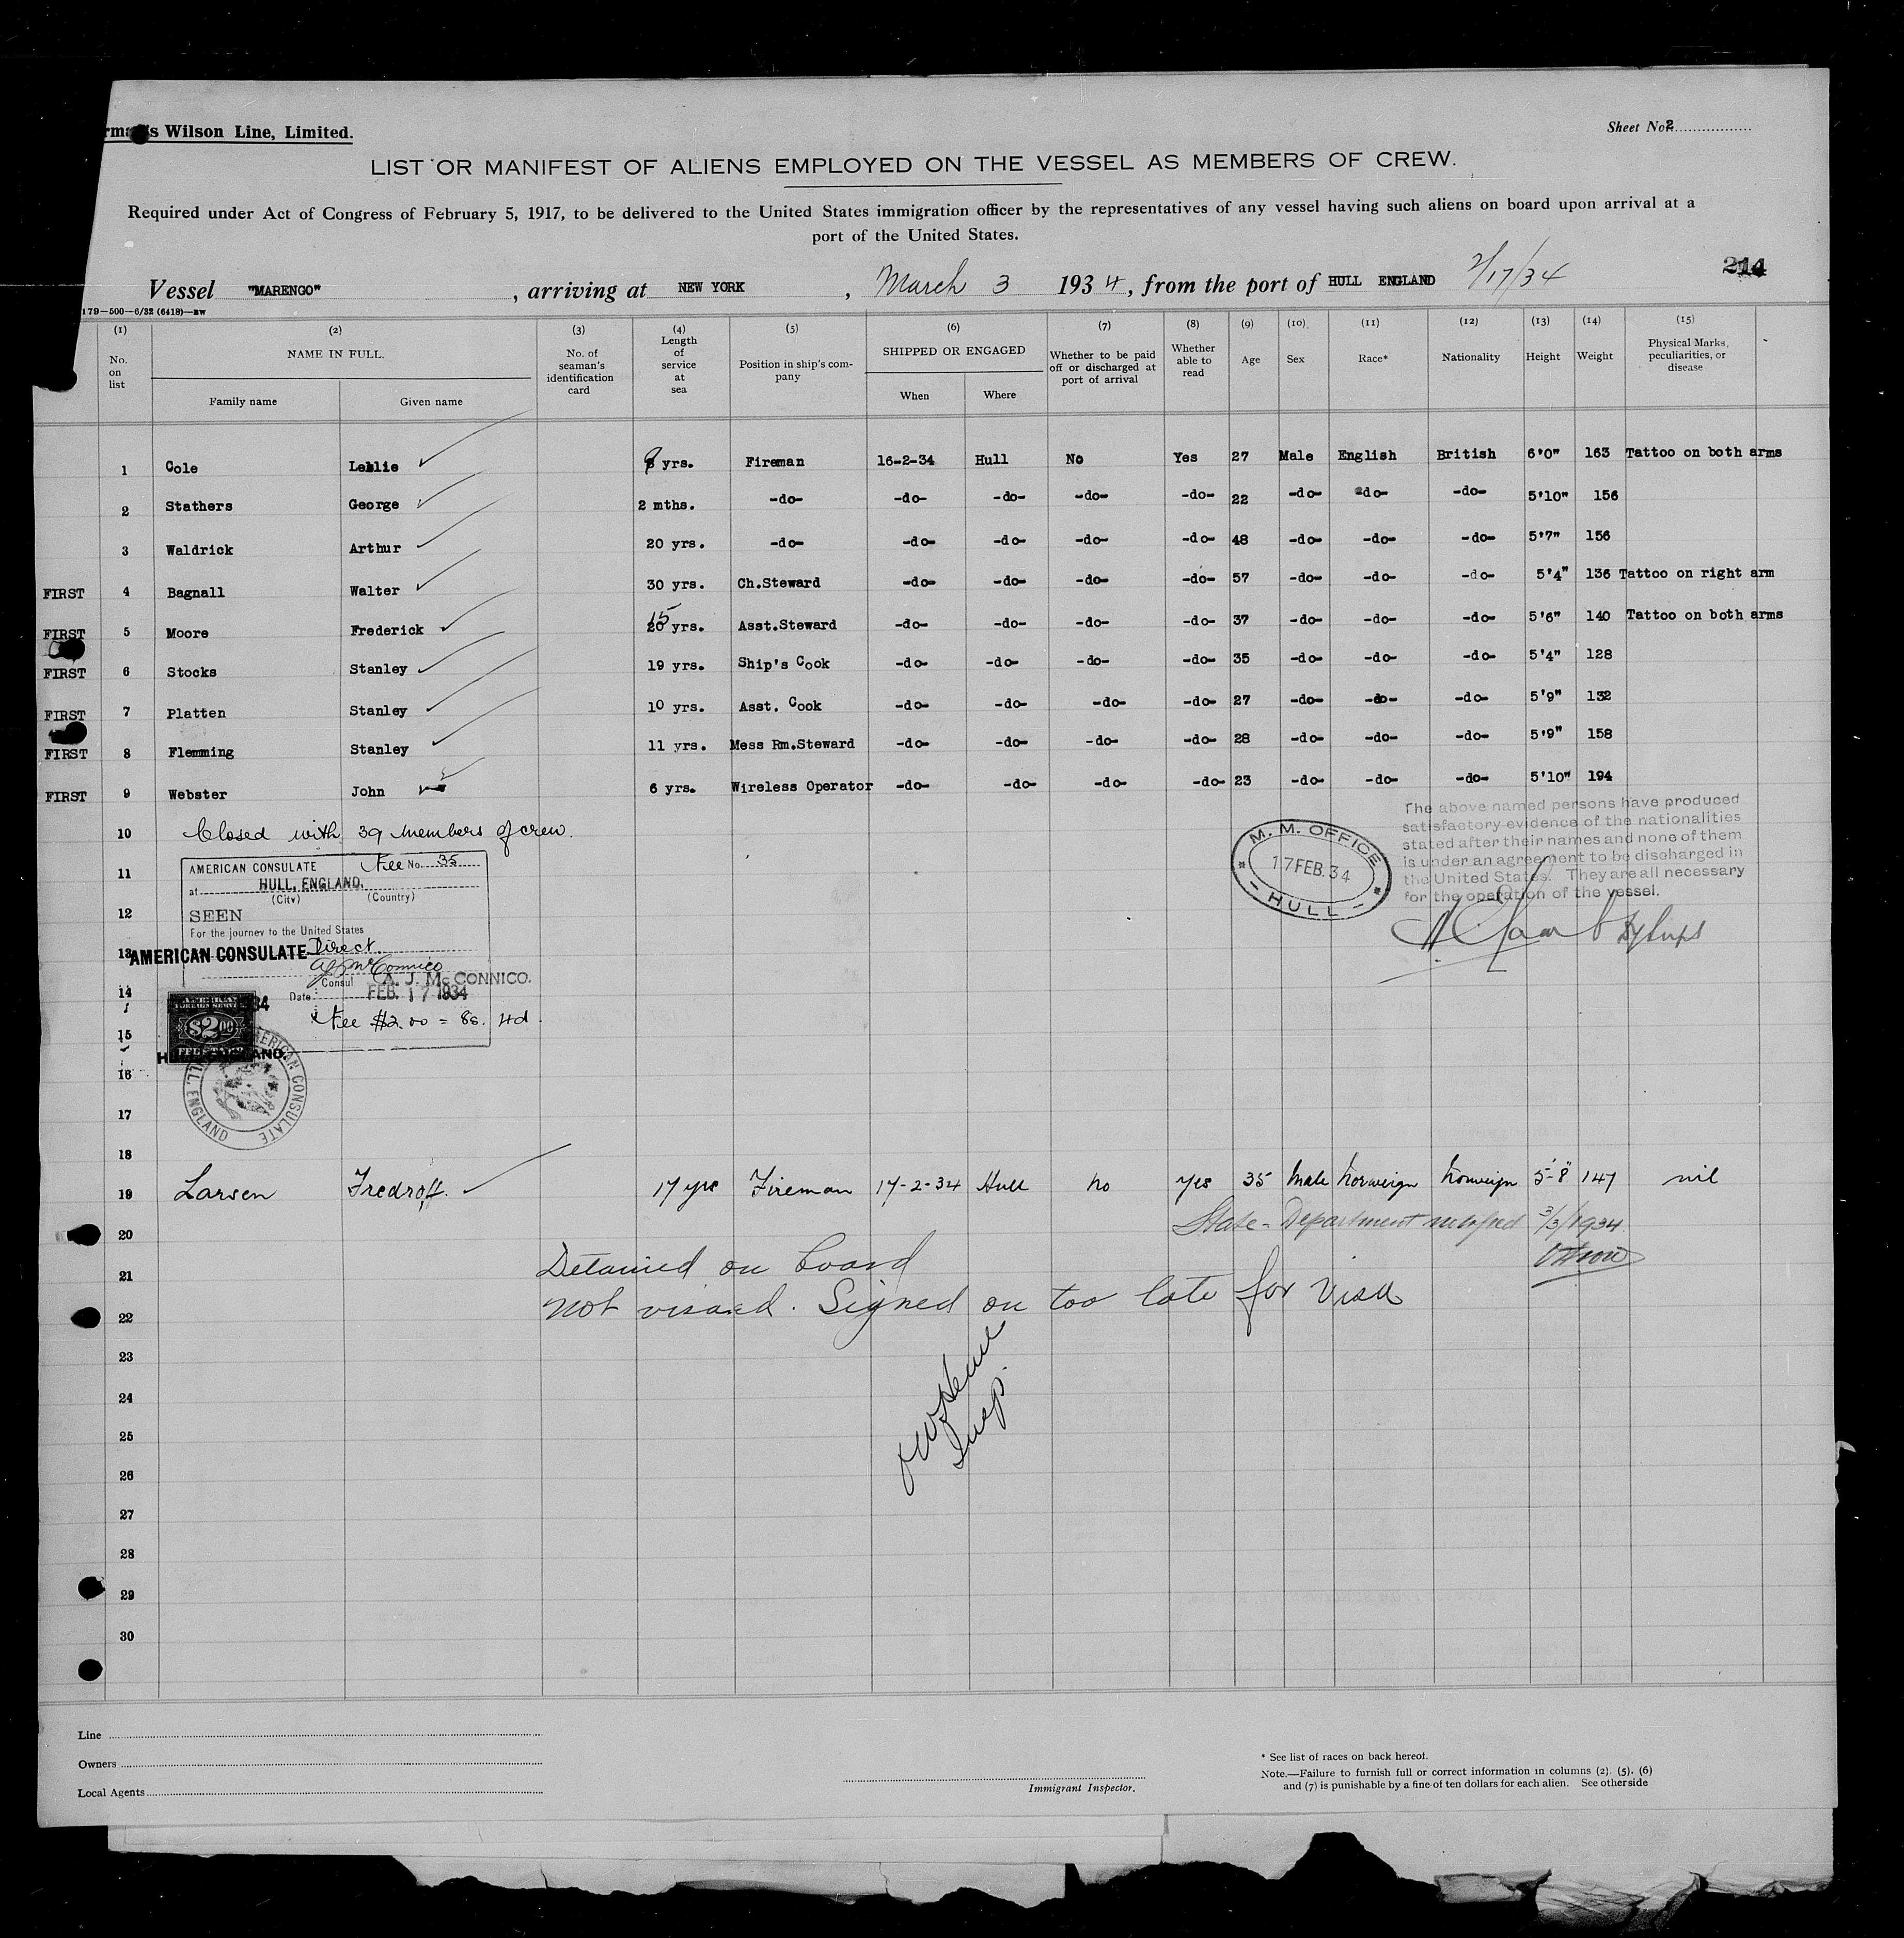 s Wilson Line, Limited.
Sheet No. 2
LIST OR MANIFEST OF ALIENS EMPLOYED ON THE VESSEL AS MEMBERS OF CREW.
Required under Act of Congress of February 5, 1917, to be delivered to the United States immigration officer by the representatives of any vessel having such aliens on board upon arrival at a
port of the United States.
214
Vessel "MARENGO", arriving at NEW YORK, March 3 1934, from the port of HULL ENGLAND 2/17/34
179—500—6/32 (6418)—
(1) (2) (3) (4) (5) (6) (7) (8) (9) (10) (11) (12) (13) (14) (15)
No. on list NAME IN FULL. No. of seaman's identification card Length of service at sea Position in ship's company SHIPPED OR ENGAGED Whether to be paid off or discharged at port of arrival Whether able to read Age Sex Race* Nationality Height Weight Physical Marks, peculiarities, or disease
Family name Given name When Where
1 Cole Leslie yrs. Fireman 16-2-34 Hull No Yes 27 Male English British 6'0" 163 Tattoo on both arms
2 Stathers George 2 mths. -do- -do- -do- -do- -do- 22 -do- -do- -do- 5'10" 156
3 Waldrick Arthur 20 yrs. -do- -do- -do- -do- -do- 48 -do- -do- -do- 5'7" 156
FIRST 4 Bagnall Walter 30 yrs. Ch.Steward -do- -do- -do- -do- 57 -do- -do- -do- 5'4" 136 Tattoo on right arm
FIRST 5 Moore Frederick 15 yrs. Asst.Steward -do- -do- -do- -do- 37 -do- -do- -do- 5'6" 140 Tattoo on both arms
FIRST 6 Stocks Stanley 19 yrs. Ship's Cook -do- -do- -do- -do- 35 -do- -do- -do- 5'4" 128
FIRST 7 Platten Stanley 10 yrs. Asst. Cook -do- -do- -do- -do- 27 -do- -do- -do- 5'9" 132
FIRST 8 Flemming Stanley 11 yrs. Mess Rm.Steward -do- -do- -do- -do- 28 -do- -do- -do- 5'9" 158
FIRST 9 Webster John 6 yrs. Wireless Operator -do- -do- -do- -do- 23 -do- -do- -do- 5'10" 194
10 Closed with 39 members of crew.
The above named persons have produced
satisfactory evidence of the nationalities
stated after their names and none of them
is under an agreement to be discharged in
the United States. They are all necessary
for the operation of the vessel.
M. M. OFFICE
17 FEB. 34
HULL
11
12
13
14
15
16
17
18
AMERICAN CONSULATE Fee No. 35
at HULL, ENGLAND.
(City) (Country)
SEEN
For the journey to the United States
AMERICAN CONSULATE Direct
Consul A. J. McCONNICO.
Date FEB. 17 1934
Fee $2.00 = 8s. 4d.
$2.00
AMERICAN CONSULATE
HULL, ENGLAND
19 Larsen Fredroff. 17 yrs Fireman 17-2-34 Hull No Yes 35 Male Norweign Norweign 5'-8" 147 nil
20 State-Department notified 3/3/1934
21 Detained on board
22 Not visaed. Signed on too late for Visa
Insp.
23
24
25
26
27
28
29
30
Line
Owners
Local Agents
Immigrant Inspector.
* See list of races on back hereof.
Note.—Failure to furnish full or correct information in columns (2). (5). (6)
and (7) is punishable by a fine of ten dollars for each alien. See other side